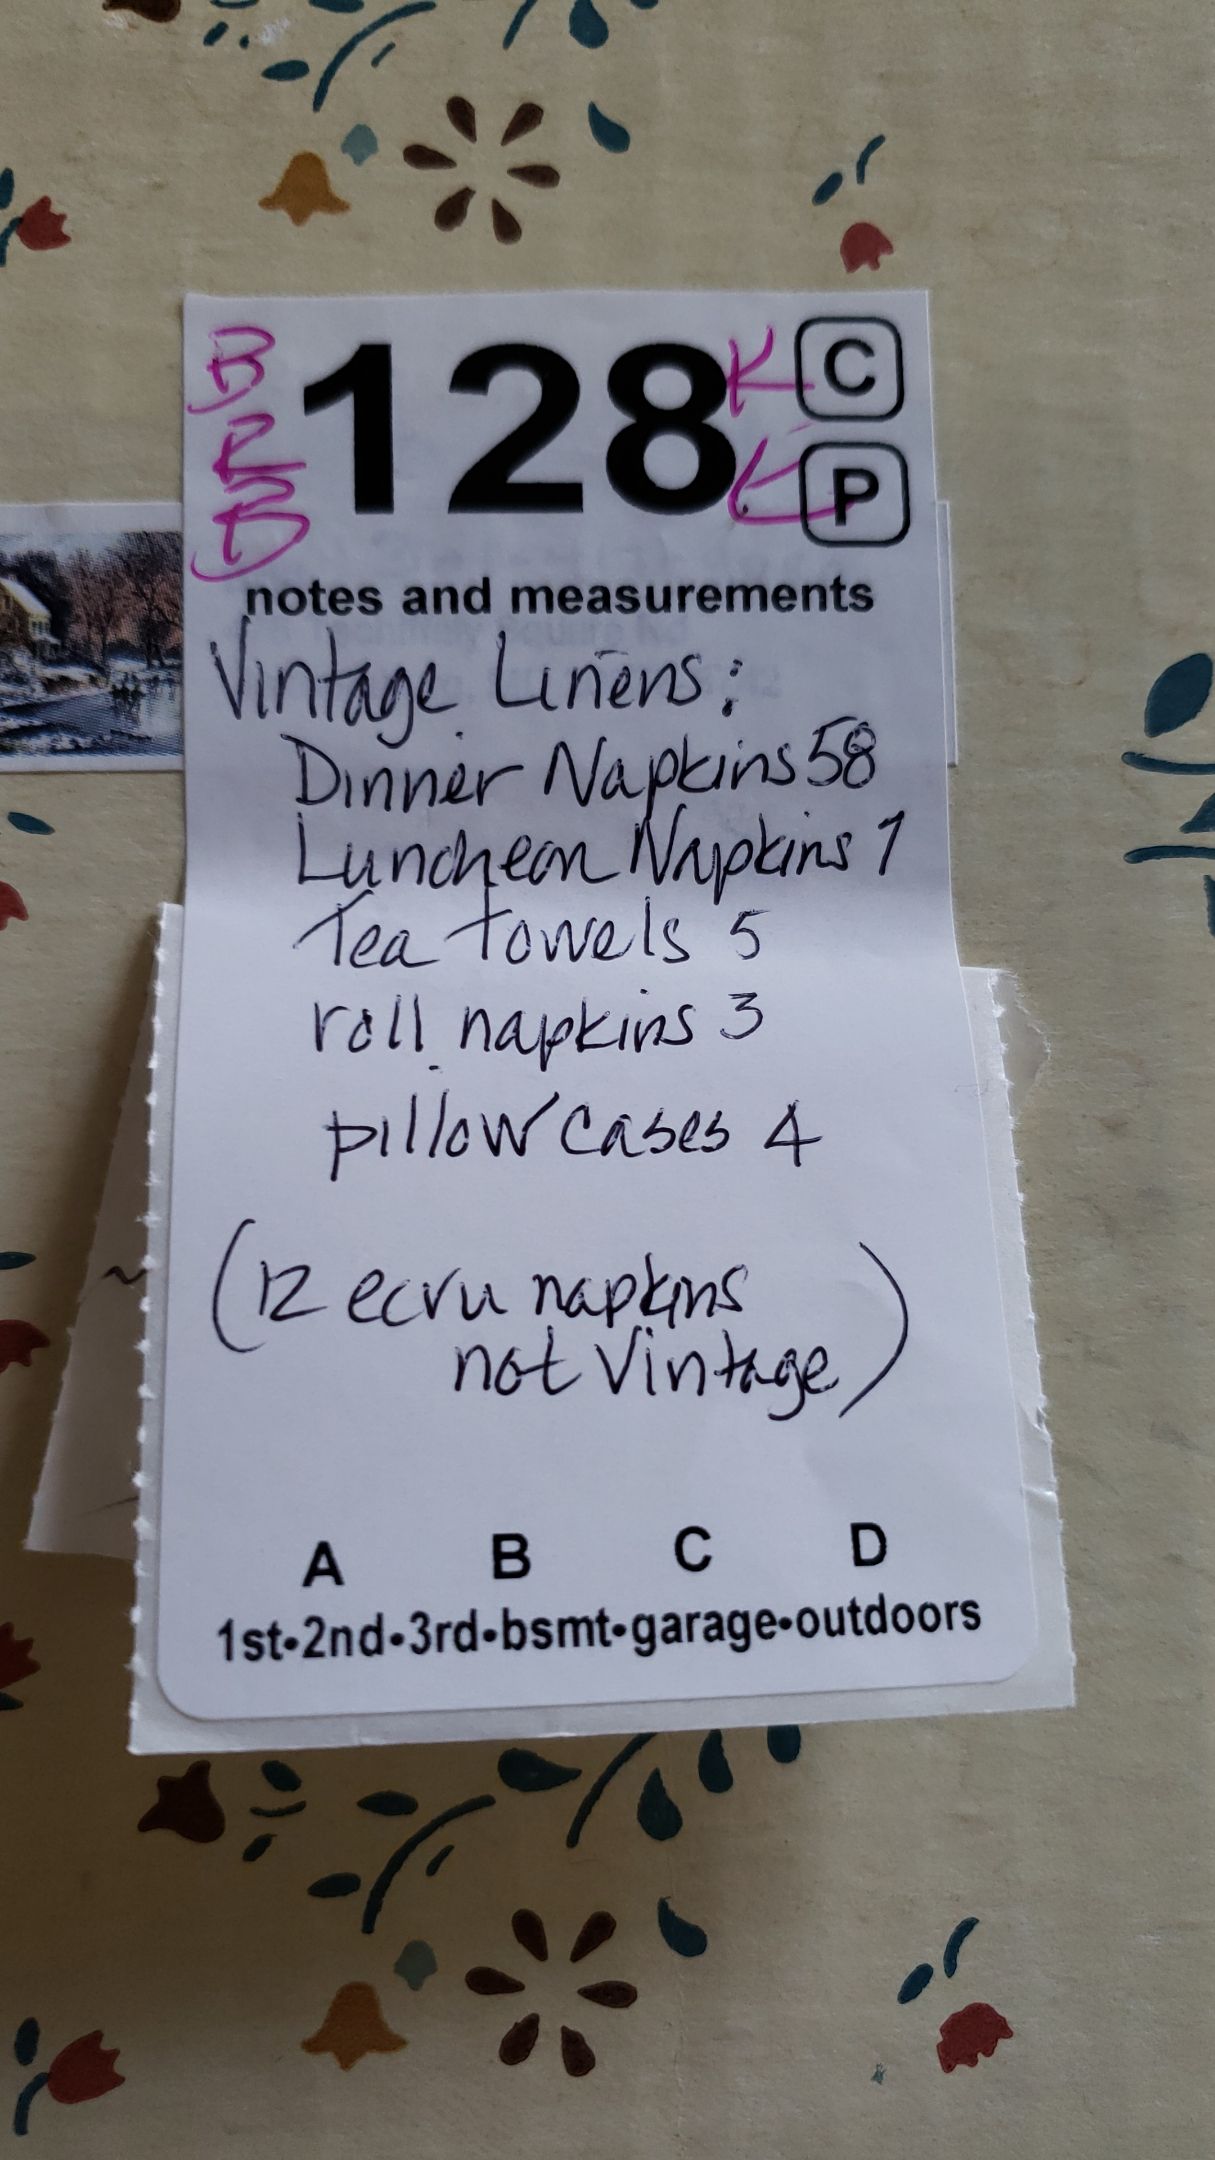 B
R
B
128
K
C
P
notes and measurements
Vintage Linens:
Dinner Napkins 58
Luncheon Napkins 7
Tea towels 5
roll napkins 3
pillow cases 4
(12 ecru napkins
not Vintage)
A B C D
1st•2nd•3rd•bsmt•garage•outdoors